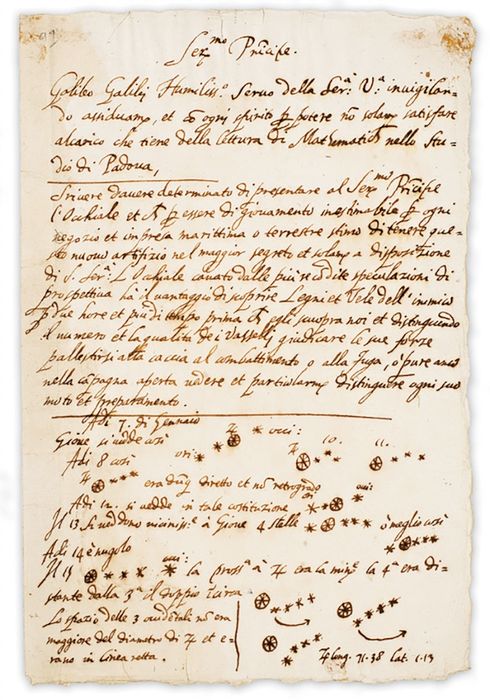 Ser.mo Principe.
Galileo Galilej Humiliss.o Servo della Ser.a V.a invigilan-
do assiduam.e, et cō ogni spirito p potere nō solam satisfare
alcarico che tiene della lettura di Mathematica nello Stu-
dio di Padova,
Scrive davere determinato di presentare al Ser.mo Principe
l'Occhiale et p essere di giovamento inestimabile p ogni
negozio et impresa marittima o terrestre stimo di tenere que-
sto nuovo artifizio nel maggior segreto et solam a disposizione
di S. Ser.a L'Occhiale cavato dalle più recōdite speculazioni di
prospettiva ha il vantaggio di scoprire Legni et Vele dell'inimico
p due hore et più di tempo prima egli scuopra noi et distinguendo
il numero et la qualità dei Vasselli giudicare le sue forze
pallestirsi alla caccia al combattimento o alla fuga, o pure anco
nella cāpagna aperta vedere et particolarm distinguere ogni suo
moto et preparamento.
Adi 7. di Gennaio
Giove si vedde così occi:
Adi 8 così ori 10. 11.
era duq diretto et nō retrogrado
Adi 12. si vedde in tale costituzione ori occi:
Il 13 si veddono vicinis.e à Giove 4 stelle ò meglio così
Adi 14 è nugolo
Il 15 occi: la pross.a à 4 era la min.e la 4.a era di-
stante dalla 3.a il doppio
Lo spazio delle 3 occidētali nō era
maggiore del diametro di 4 et e-
rano in linea retta.
long. 71.38 lat. 1.13